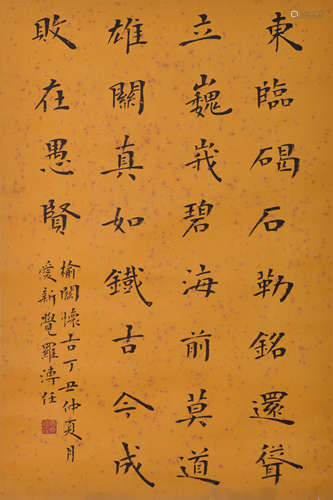 東臨碣石勒銘還聳
立巍峩碧海前莫道
雄關真如鐵古今成
敗在愚賢
榆關懷古丁丑仲夏月
愛新覺羅溥任